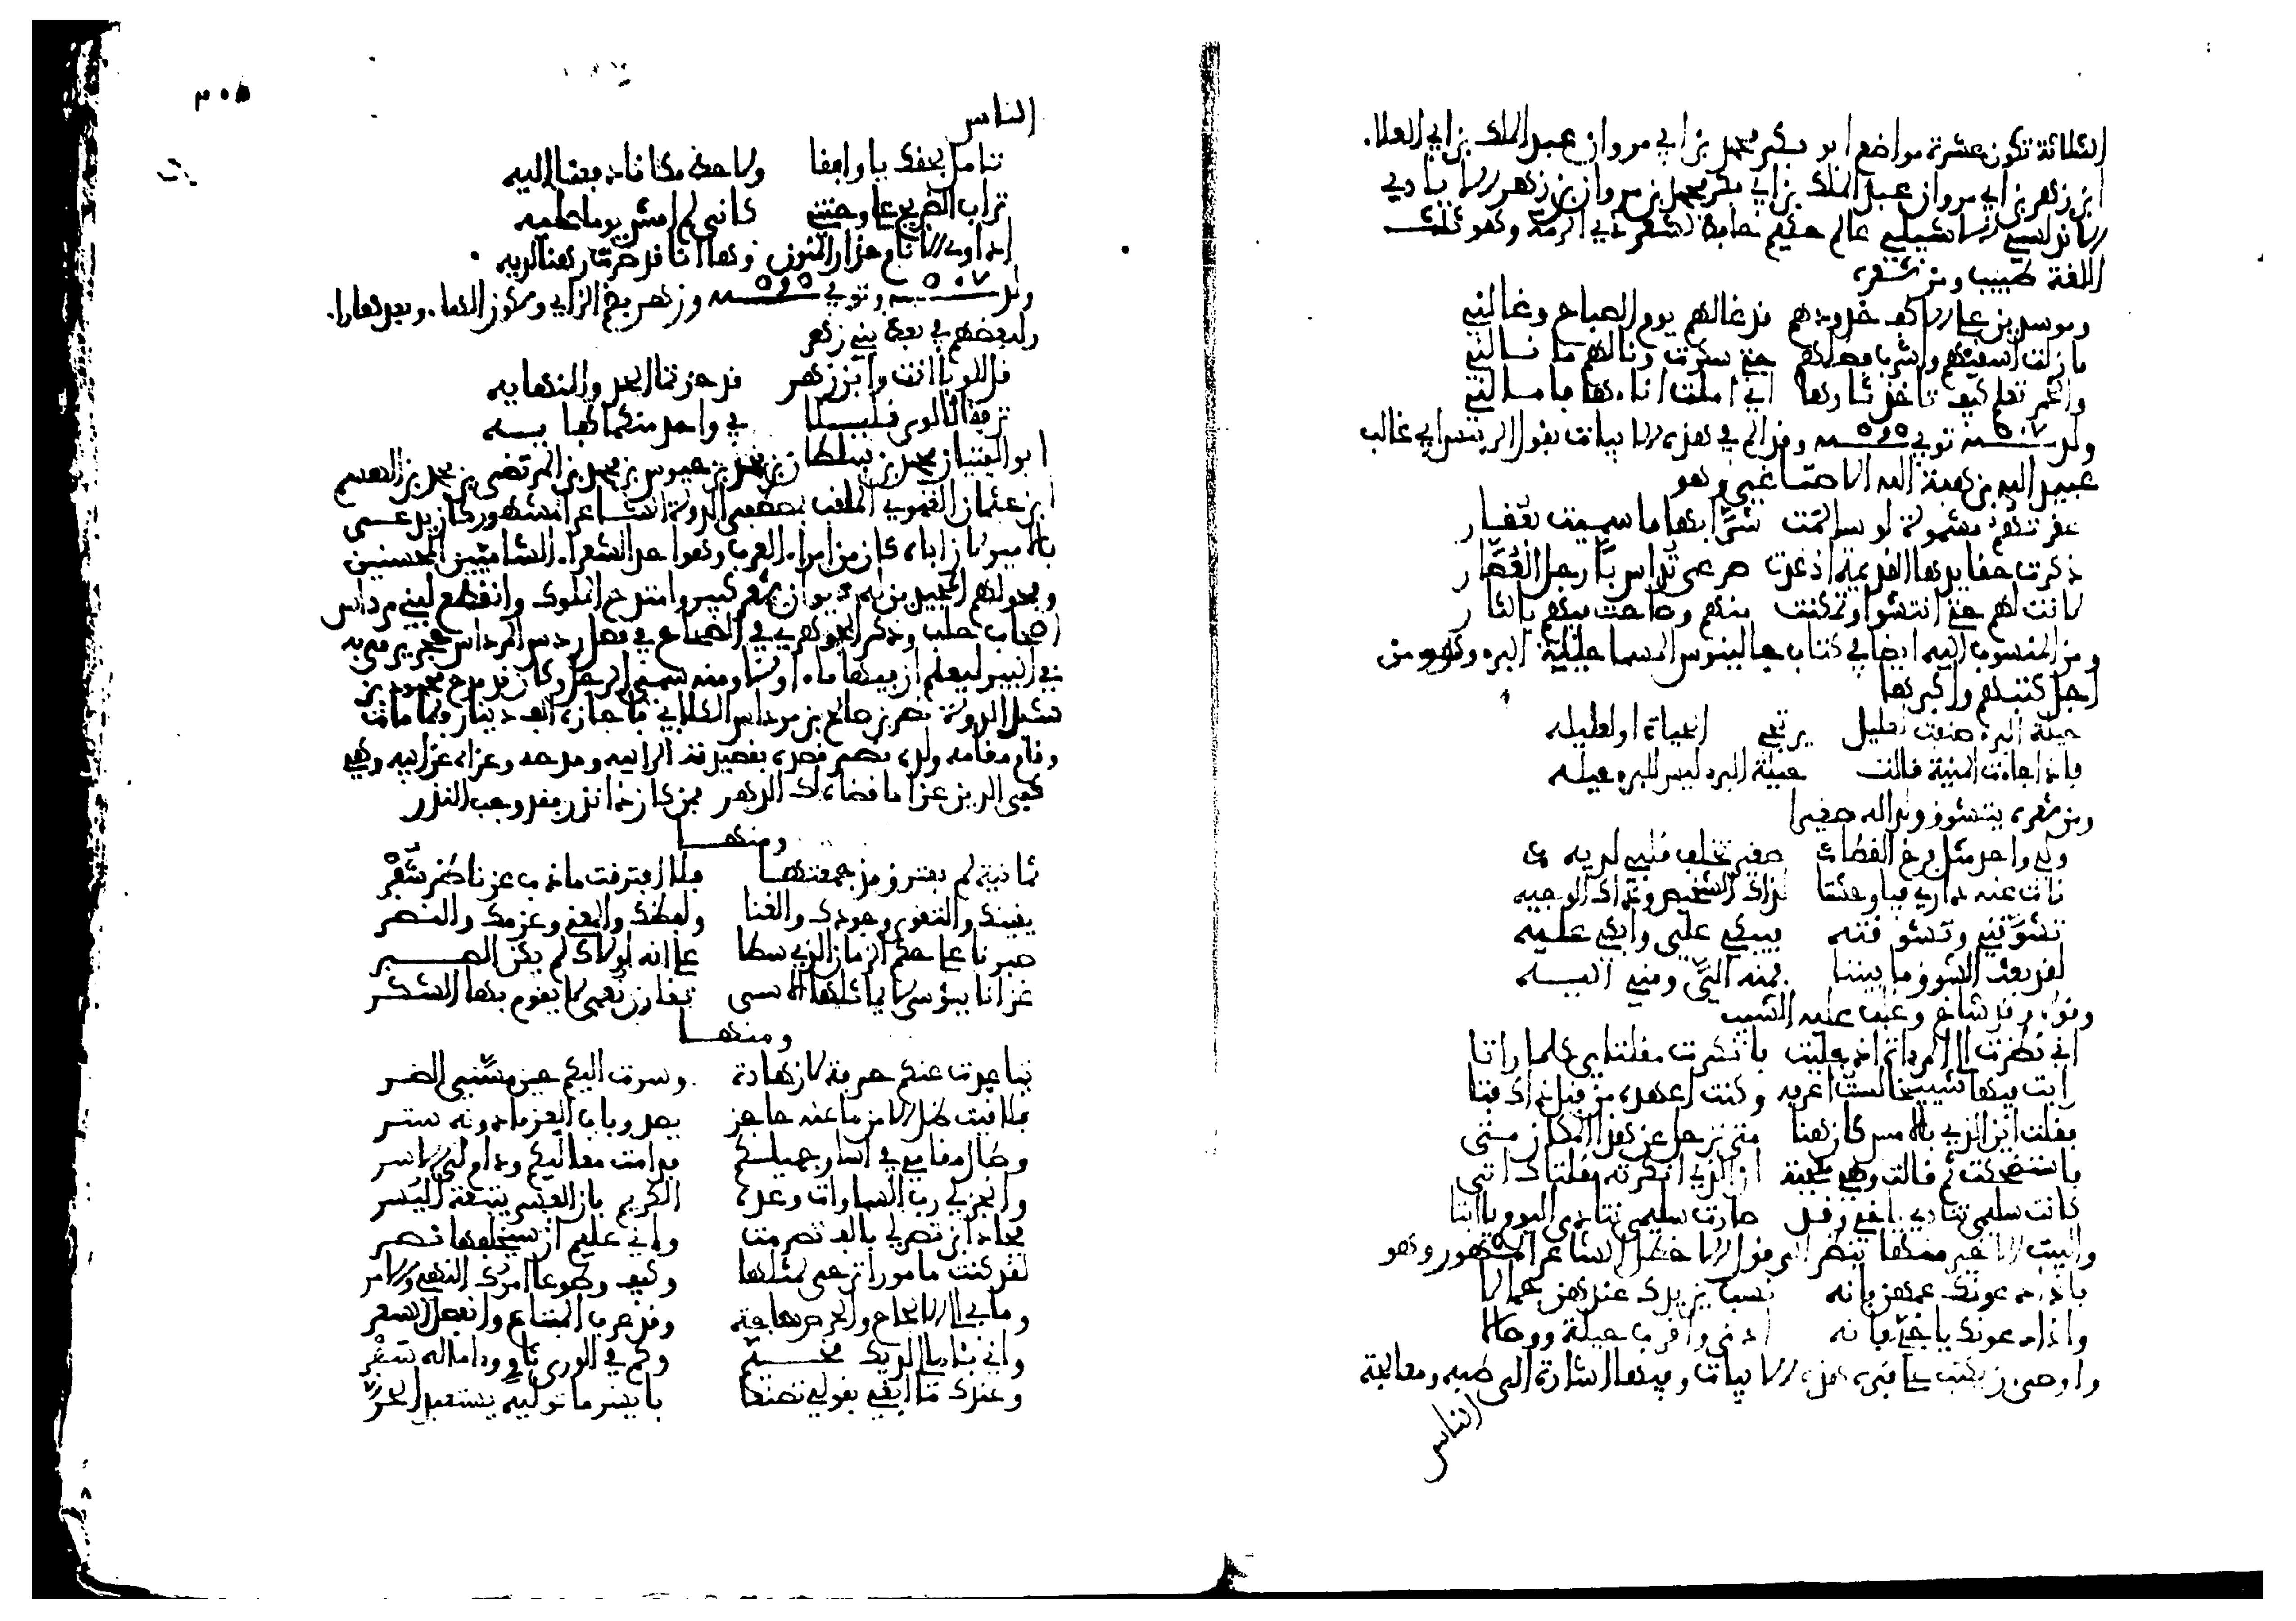 الثلاثة تكون عشرة مواضع ابو بكر محمد بن ابي مروان عبد الملك بن ابي العلاء
ابن زهر بن ابي مروان عبد الملك بن ابي بكر محمد بن مروان بن زهر الايادي
الاندلسي الاشبيلي عالم حكيم حافظ لشعر ذي الرمة وهو ثلث
اللغة طبيب ومن شعره
وموسدين على الاكف خدودهم قد غالهم يوم الصباح وغالني
ما زلت اسقيهم واشرب فضلهم حتى سكرت ونالهم ما نالني
والخمر تعلم كيف تاخذ ثارها اني املت اناءها فامالني
ولد ٥٠٧ توفي ٥٩٥ وقد الم في هذه الابيات بقول الرئيس ابي غالب
عبيد الله بن هبة الله الاصباغي وهو
عقرتهم مشمولة لو سالمت شرابها ما سميت بعقار
ذكرت حقايدها القديمة اذ غدت صرعى تداس بارجل العصار
لانت لهم حتى انتشوا وتمكنت منهم وصاحت فيهم بالثار
ومن المنسوب اليه ايضا في كتاب جالينوس المسما حيلة البره وهو من
اجل كتبهم واكبرها
حيلة البره صنفت لعليل يرتجي الحياة او لعليله
فاذا جاءت المنية قالت حيلة البره ليس للبره حيله
ومن شعره يتشوق ولدا له صغيرا
ولي واحد مثل فرخ القطاة صغير تخلف قلبي لديه
نات عنه داري فيا وحشتا لذاك الشخيص وذاك الوجيه
تشوقني وتشوقته فيبكي علي وابكي عليه
لقد تعب الشوق ما بيننا فمنه الي ومني اليه
وقوله وقد شاخ وغلب عليه الشيب
اني نظرت الى المرءاة اذ جليت فانكرت مقلتاي كلما راتا
رايت فيها شييخا لست اعرفه وكنت اعهده من قبل ذاك فتا
فقلت اين الذي بالامس كان هنا متى ترحل عن هذا المكان متى
فاستضحكت ثم قالت وهي معجبة ان الذي انكرته مقلتاك اتى
كانت سليمى تنادي يا اخي وقد صارت سليمى تنادي اليوم يا ابتا
والبيت الاخير منها ينظر الى قول الاخطل الشاعر المشهور وهو
فاذا دعونك عمهن فانه نسب يزيدك عندهن خبالا
واذا دعونك يا اخي فانه ادنى واقرب خيلة ووصالا
واوصى ان يكتب على قبره هذه الابيات وفيها اشارة الى طبه ومعالجة
الناس
٣٠٥
الناس
تامل بحقك يا واقفا ولاحظ مكانا دفعنا اليه
تراب الضريح على وجنتي كاني لم امش يوما عليه
اداوي الانام حذار المنون وها انا قد صرت رهنا لديه
ولد ٥٠٧ وتوفي ٥٩٥ وزهر بضم الزاي وسكون الهاء وبعدها را
ولبعضهم في بعض بني زهر
قل للوبا انت وابن زهر قد جزتما الحد والنهايه
ترفقا بالورى قليلا في واحد منكما كفايه
ابو الفتيان محمد بن سلطان بن محمد بن حيوس بن محمد بن المرتضى بن محمد بن الهيثم
ابن عثمان الغنوي الملقب بصفي الدولة الشاعر المشهور كان يدعى
بالامير لان اباه كان من امراء العرب وهو احد الشعراء الشاميين المحسنين
وفحولهم المجيدين له ديوان شعر كبير وامتدح الملوك وانقطع لبني مرداس
اصحاب حلب وذكر الجوهري في الصحاح في فصل ردس المرداس حجر يرمى به
في البير ليعلم ان فيها ماء او لا ومنه سمي الرجل وكان قد مدح محمود بن
شبل الدولة نصر بن صالح بن مرداس الكلابي فاجازه الف دينار ولما مات
وقام مقامه ولده نصر قصده بقصيدته الرائية ومدحه وعزاه عن ابيه وهي
كفى الدين عزا ما قضاه لك الدهر فمن كان ذا نذر فقد وجب النذر
ومنها
ثمانية لم تفترق مذ جمعتها فلا افترقت ما ذب عن ناظر شفر
يقينك والتقوى وجودك والغنا ولفظك والمعنى وعزمك والنصر
صبرنا على حكم الزمان الذي سطا على انه لولاك لم يكن الصبر
غزانا ببؤسى لا يماثلها الاسى تقارن نعمى لا يقوم بها الشكر
ومنها
تباعدت عنكم حرفة لا زهادة وسرت اليكم حين مسني الضر
فلاقيت ظل الامن ما عنه حاجز يصد وباب العز ما دونه ستر
وطال مقامي في اسار جميلكم فدامت معاليكم ودام لي الاسر
وانجز لي رب السماوات وعده الكريم بان العسر يتبعه اليسر
فجاد ابن نصر لي بالف تصرمت واني عليم ان سيخلفها نصر
لقد كنت مامورا ترجى لمثلها وكيف وطوعا امرك النهي والامر
وما بي الى الالحاح والحرص حاجة وقد عرف المبتاع وانفصل السعر
واني بامالي لديك مخيم وكم في الورى ثاو وداماله سفر
وعندك ما ابغي بقولي تصنعا بايسر ما توليه يستعبد الحر